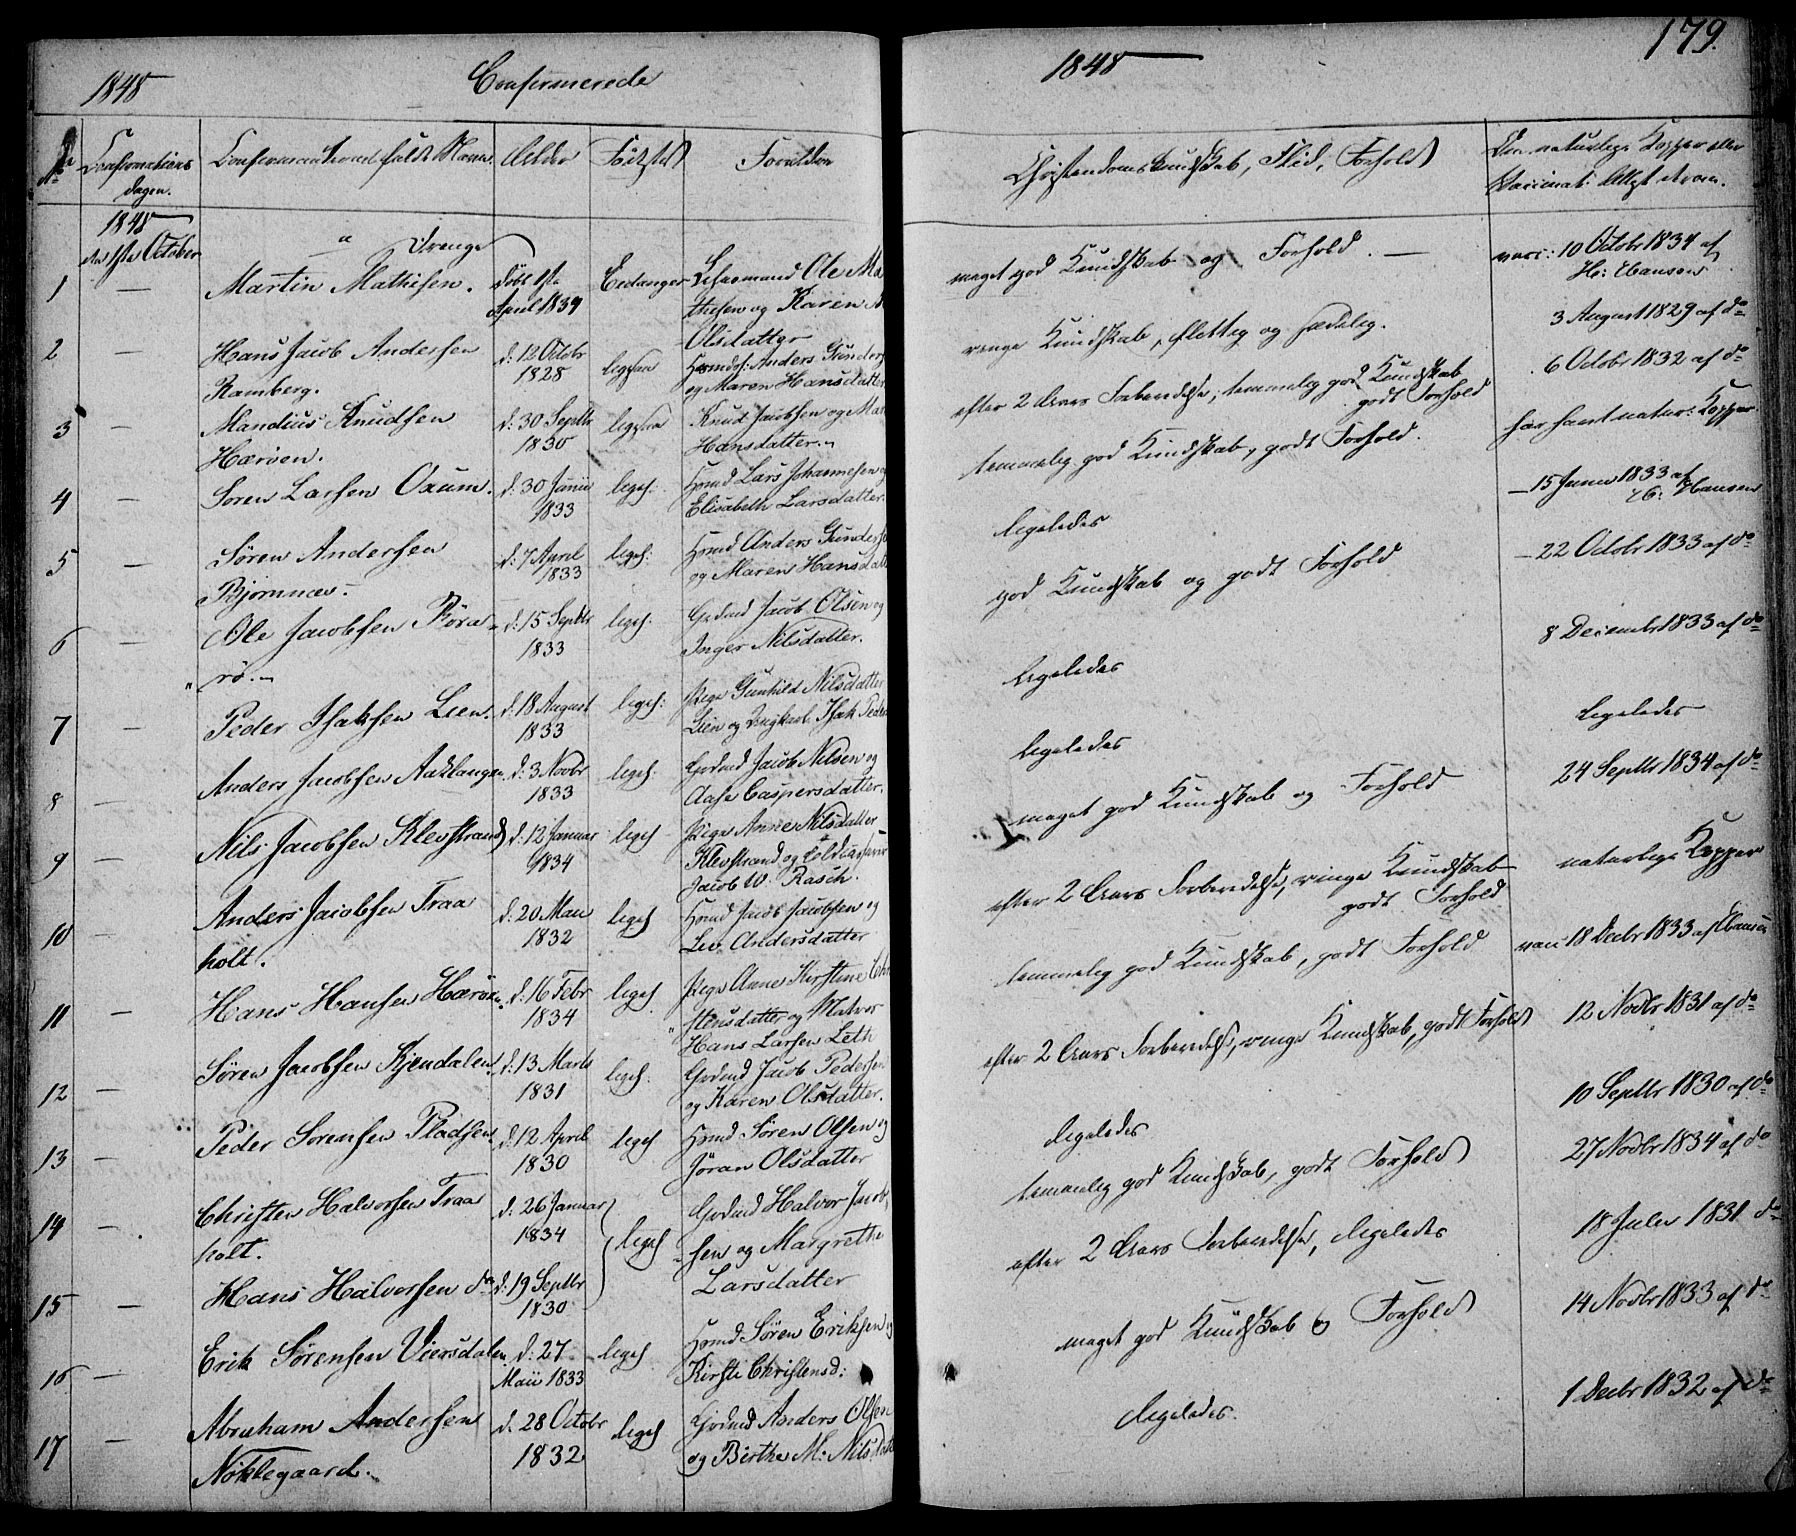 1848
Confirmerede
No
Confirmations
dagen.
Confirmanternes fulde Navn
Alder
Fødested
Forældre
1848
den 1ste October
" Drenge
1 — Martin Mathisen. Døbt 1ste Eedanger Ole Ma
April 1834 thisen og Karen
Olsdatter
2 — Hans Jacob Andersen d: 12 Octobr ligesaa Huusmd: Anders Gunders
Ramberg. 1828 og Maren Hansdatter
3 — Mandius Knudsen d: 30 Septbr ligesaa Knud Jacobsen og Mar
Hærøen. 1830 Hansdatter. "
4 — Søren Larsen Oxum. d: 30 Junii liges: Huusmd Lars Johannesen og
1833 Elisabeth Larsdatter
5 — Søren Andersen d: 7 April liges: Huusmd Anders Gunders
Bjørnnæs. 1833 og Maren Hansdatt
6 — Ole Jacobsen Røra d: 15 Septbr liges: Grdmd Jacob Olsen og
" rø. — 1833 Inger Nilsdatter.
7 — Peder Isaksen Lien. d: 18 August liges: Pige Gunhild Nilsdatter
1833 Lien og Ungkarl Isak Peder
8 — Anders Jacobsen Aaklangen d: 3 Novbr liges: Grdmd Jacob Nilsen og
1833 Aase Caspersdatter.
9 — Nils Jacobsen Klevstrand d: 12 Januar liges Pige Anne Nilsdatter
1834 Klevstrand og
Jacob W. Rasch.
10 — Anders Jacobsen Traa d: 20 Maii liges Huusmd Jacob Jacobsen og
holt. 1832 Liv Andersdatter
11 — Hans Hansen Hærøen d: 16 Febr liges Pige Anne Kirstine Chr
1834 " stensdatter og Matros
Hans Larsen Leth
12 — Søren Jacobsen Kjendalen d: 13 Marts liges: Grdmd Jacob Pedersen
1831 og Karen Olsdatter.
13 — Peder Sørensen Pladsen d: 12 April liges Huusmd Søren Olsen og
1830 Jøran Olsdatter
14 — Christen Halvorsen Traa d: 26 Januar liges Grdmd Halvor Jacob
holt. 1834 sen og Margrethe
15 — Hans Halvorsen do d: 19 Septbr Larsdatter
1830
16 — Erik Sørensen Viersdalen d: 27 liges Huusmd: Søren Eriksen og
Maii 1833 Kirsti Christensd:
17 Abraham Andersen d: 28 Octobr liges Grdmd Anders Olsen
Nøklegaard. 1832 og Birthe M: Nilsdatt
1848 —
179.
Christendomskundskab, Flid, Forhold
Den naturlige Kopper eller
Vaccinat: Attest
meget god Kundskab og Forhold. — vacc: 10 Octobr 1834 af
H: Hansen
ringe Kundskab, flittig og sædelig. 3 August 1829 af do
efter 2 Aars Forberedelse, temmelig god Kundskab 6 Octobr 1832 af do
godt Forhold
temmelig god Kundskab, godt Forhold. har havt natur: Kopper
ligeledes — 15 Junii 1833 af
H: Hansen
god Kundskab og godt Forhold — 22 Octobr 1833 af do
ligeledes 8 Decembr 1833 af do
ligeledes ligeledes
meget god Kundskab og Forhold 24 Septbr 1834 af do
efter 2 Aars Forberedelse, ringe Kundskab naturlige Kopper
godt Forhold
temmelig god Kundskab, godt Forhold vacc 18 Decbr 1833 af Hansen
efter 2 Aars Forberedelse, ringe Kundskab, godt Forhold 12 Novbr 1831 af do
ligeledes 10 Septbr 1830 af do
temmelig god Kundskab, godt Forhold 27 Novbr 1834 af do
efter 2 Aars Forberedelse, ligeledes 18 Julii 1831 do
meget god Kundskab og Forhold 14 Novbr 1833 af do
ligeledes. 1 Decbr 1832 af do